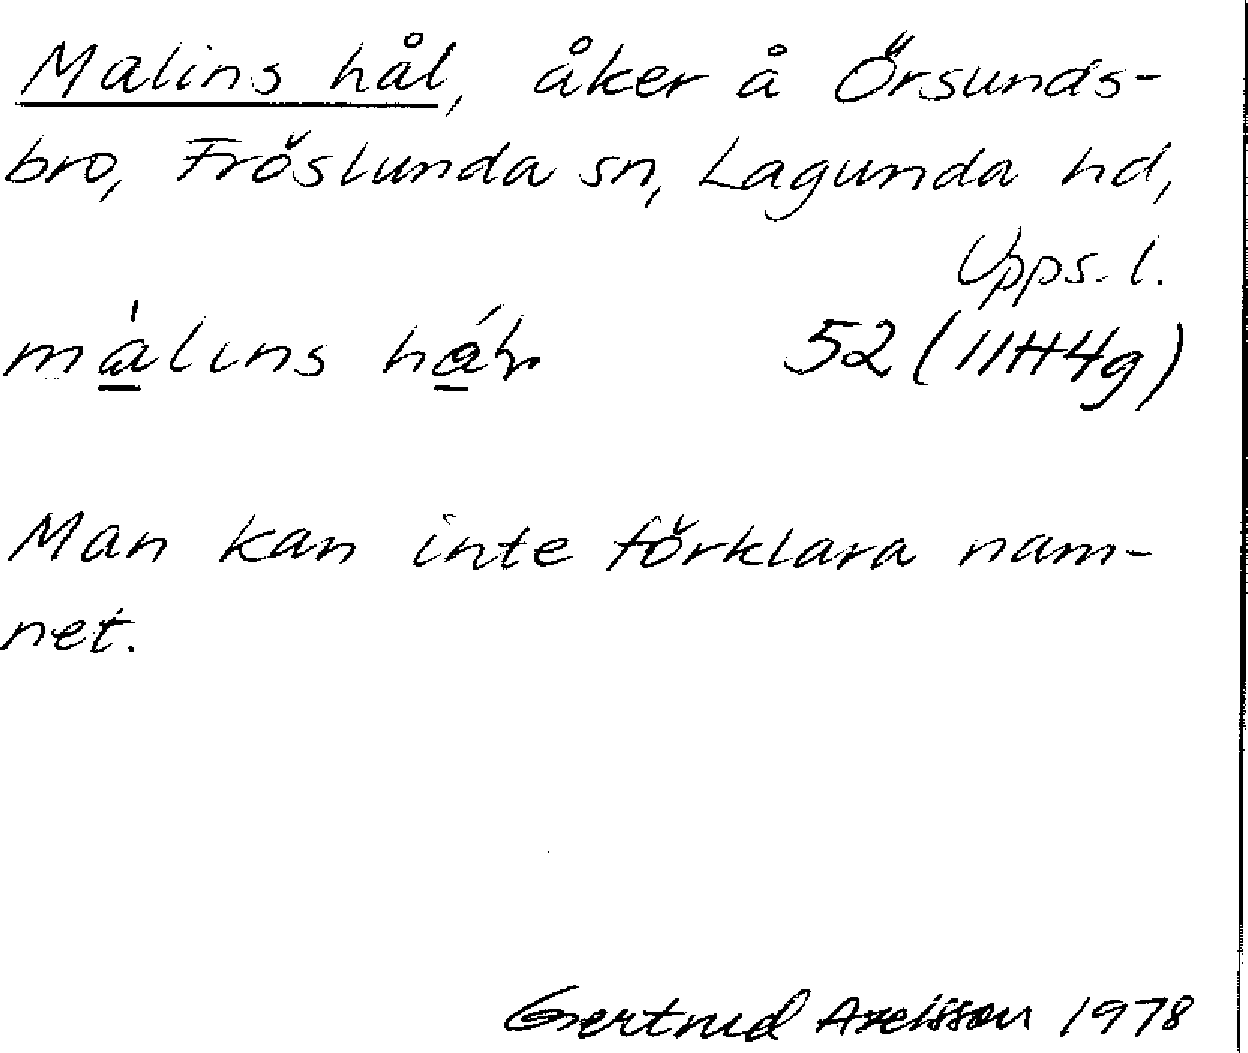 Malins hål, åker å Örsunds-
bro, Fröslunda sn, Lagunda hd,
Upps. l.
màlıns 52 (11H4g)
Man kan inte förklara nam-
net.
Gertrud Axelsson 1978